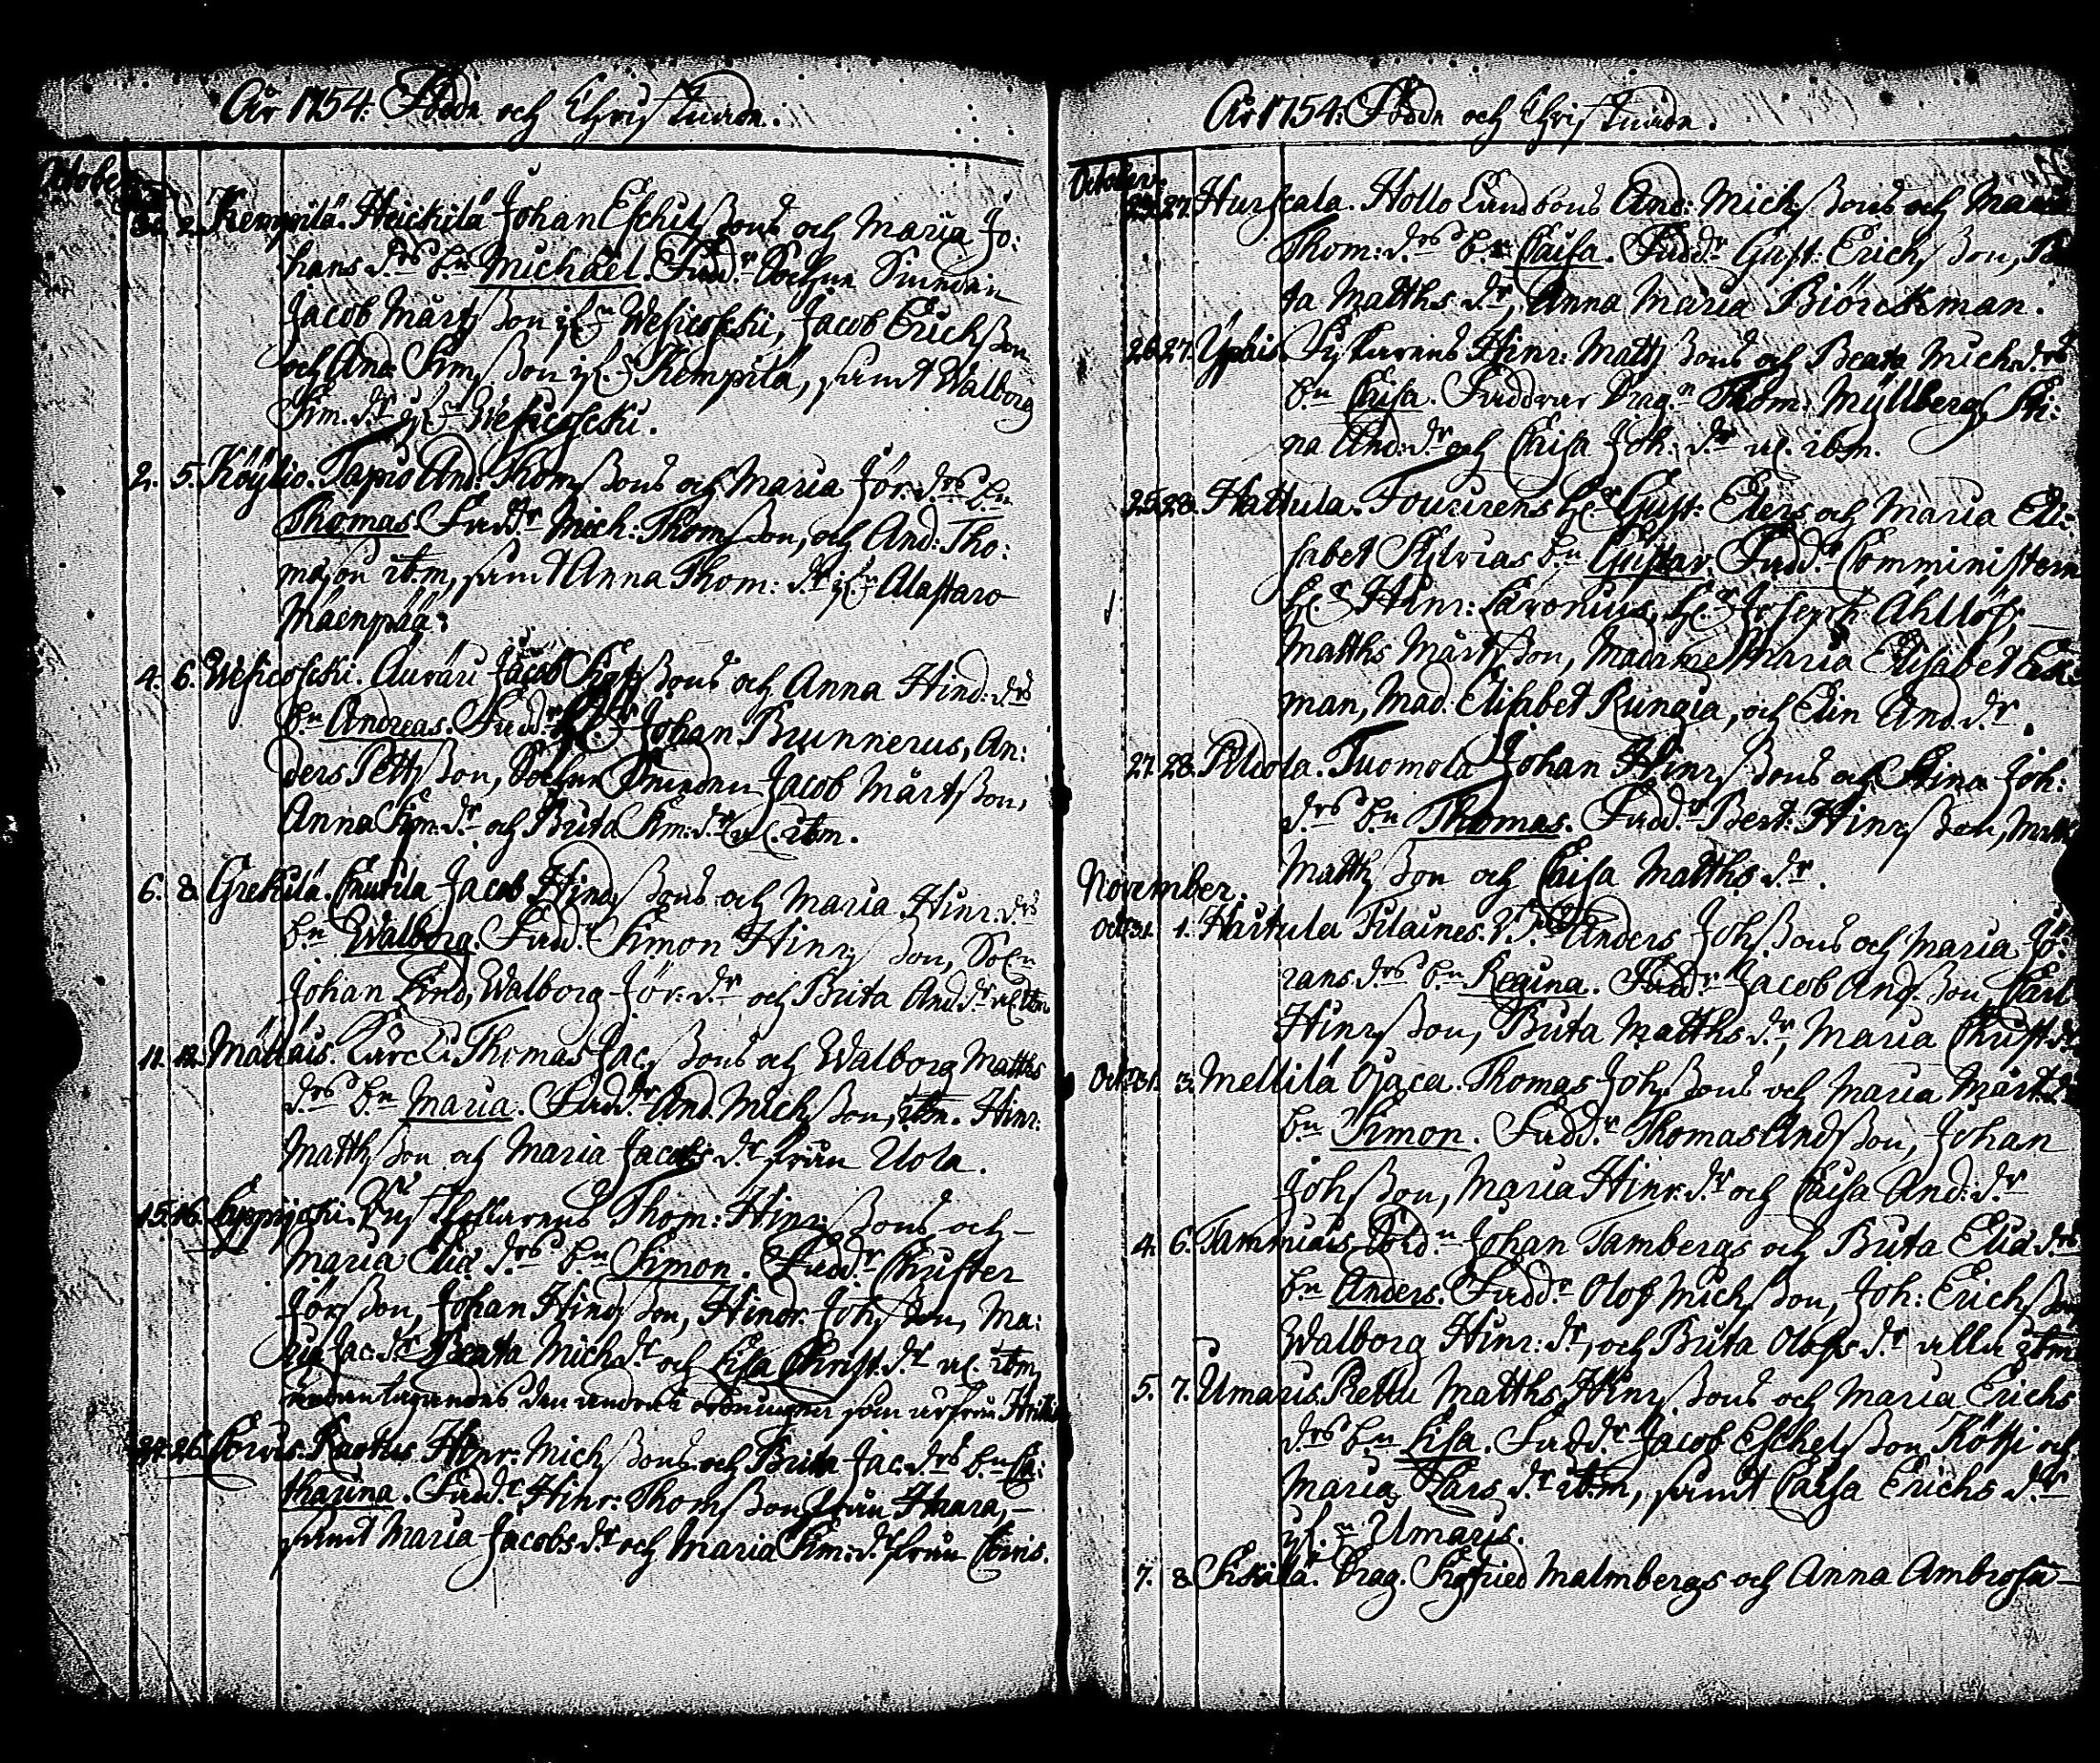 År 1754. Födde och Christnade.
October
30. 2. Kempilä. Heickilä Johan Eschilssons och Maria Jo:
hans drs bn Michael. Fadd:r
Jacob Märtsson ifr: Wesicoscki, Jacob Erichsson
och And: Simsson ifr: Kempilä, samt Walborg
Sim. dr ifr: Wesicoscki.
2. 5. Köylio. Tapio And: Thomssons och Maria Jör. drs bn
Thomas. Fadd:r Mich: Thomsson, och And: Tho:
masson ibm, samt Anna Thom: dr ifr: Alastaro
Mäenpää.
4. 6. Wesicoscki. Auväri Jacob Sigfssons och Anna Hind: drs
bn Andreas. Fadd:r H:r Johan Brunnerus, An:
ders Pettsson, Jacob Märtsson,
Anna Sim: dr och Brita Sim: dr al. ibm.
6. 8. Grekilä. Cautila Jacob Hindssons och Maria Hinr. drs
bn Walborg. Fadd:r Simon Hinrsson, Sol:n
Johan Lind, Walborg Jör: dr och Brita And. dr al ibm
11. 12. Mällais. Thomas Jacssons och Walborg Matths
drs bn Maria. Fadd:r And. Michsson, ibm. Hinr:
Matthsson och Maria Jacobs dr från Uola.
15. 16. Thom: Hinrssons och
Maria Elia drs bn Simon. Fadd:r Christer
Jörsson, Johan Hindsson, Hindr. Johsson, Ma:
ria Jac: dr Beata Mich dr och Lisa Christ. dr al. ibm,
som är från
24. 26. Corvis. Hinr: Michssons och Brita Jac. drs bn Ca:
tharina. Fadd:r Hinr: Thomsson från Haara,
samt Maria Jacobs dr och Maria Sim: dr från Corvis.
År 1754. Födde och Christnade.
October
23. 27. Hurscala. Hollo Landbons And: Michssons och Maria
Thom: drs bn Caisa. Fadd:r Gust: Erichsson,
ta Matths dr, Anna Maria Biörckman.
26. 27. Ypäis. Hinr: Mattssons och Beata Mich. drs
bn Caisa. Faddrar Drag:n Thom: Myllberg, Sti:
na And: dr och Caisa Joh: dr al. ibm.
25. 28. Hattula. H:r Gust: Elers och Maria Eli:
sabet bn Gustav. Fadd:r Comministern
H:r Hinr: H:r Joseph Ahllöf,
Matths Märtsson, Madame Maria Elisabet Eck:
man, Mad. Elisabet Rungia, och Elin And. dr.
27. 28. Peldola. Tuomola Johan Hinrssons och Stina Joh:
drs bn Thomas. Fadd:r Bert: Hinrsson, Matts
Matthsson och Caisa Matths dr.
November.
Oct. 31. 1. Hattula Anders Johssons och Maria Jö:
rans drs bn Regina. Fadd:r Jacob Andsson, Carl
Hinrsson, Brita Matths dr, Maria Christ dr
Oct. 31. 3. Mellilä Ojaca. Thomas Johssons och Maria Märt. drs
bn Simon. Fadd:r Thomas Andsson, Johan
Johsson, Maria Hinr. dr och Caisa And: dr
4. 6. Tammiais. Sold:n Johan Tambergs och Brita Elia drs
bn Anders. Fadd:r Olof Michsson, Joh: Erichsson
Walborg Hinr: dr, och Brita Olofs dr alla ibm
5. 7. Umaris. Pettu Matths Hinrssons och Maria Erichs
drs bn Lisa. Fadd:r Jacob Eschelsson Kötti och
Maria Lars dr ibm, samt Caisa Erichs dr
ifr: Umaris.
7. 8. Eskilä. Drag. Sigfried Malmbergs och Anna Ambrosia